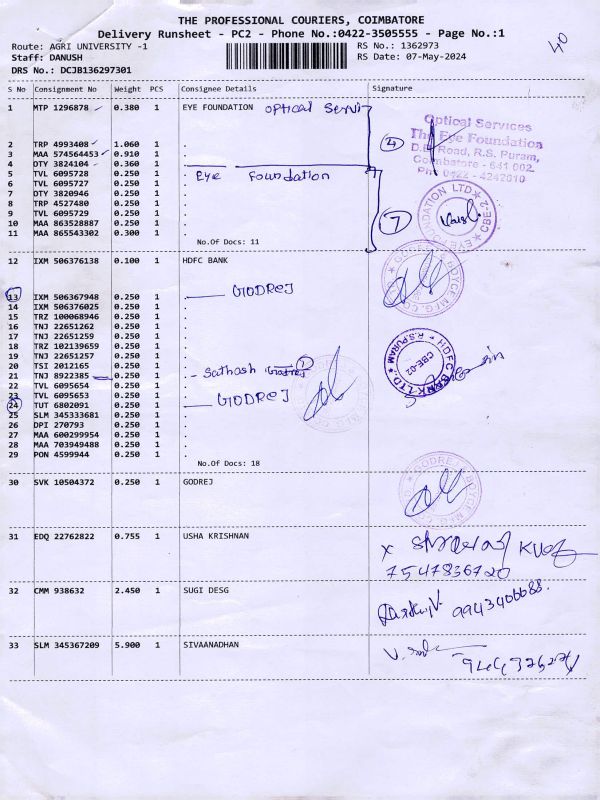 THE PROFESSIONAL COURIERS, COIMBATORE
Delivery Runsheet - PC2 - Phone No.:0422-3505555 - Page No.:1
Route: AGRI UNIVERSITY -1
RS No.: 1362973
40
Staff: DANUSH
RS Date: 07-May-2024
DRS No.: DCJB136297301
S No Consignment No Weight PCS Consignee Details Signature
1 MTP 1296878 0.380 1 EYE FOUNDATION optical Servi
2 TRP 4993408 1.060 1 .
3 MAA 574564453 0.910 1 .
4 DTY 3824104 0.360 1 .
5 TVL 6095728 0.250 1 . Eye Foundation
6 TVL 6095727 0.250 1 .
7 DTY 3820946 0.250 1 .
8 TRP 4527480 0.250 1 .
9 TVL 6095729 0.250 1 .
10 MAA 863528887 0.250 1 .
11 MAA 865543302 0.300 1 .
No.Of Docs: 11
4
7
Optical Services
The Eye Foundation
D.B. Road, R.S. Puram,
Coimbatore - 641 002.
Ph: 0422 - 4242010
EYE FOUNDATION LTD CBE-2
12 IXM 506376138 0.100 1 HDFC BANK
13 IXM 506367948 0.250 1 . GODREJ
14 IXM 506376025 0.250 1 .
15 TRZ 100068946 0.250 1 .
16 TNJ 22651262 0.250 1 .
17 TNJ 22651259 0.250 1 .
18 TRZ 102139659 0.250 1 .
19 TNJ 22651257 0.250 1 .
20 TSI 2012165 0.250 1 .
21 TNJ 8922385 0.250 1 . Sathosh
22 TVL 6095654 0.250 1 .
23 TVL 6095653 0.250 1 .
24 TUT 6802091 0.250 1 . GODREJ
25 SLM 345333681 0.250 1 .
26 DPI 270793 0.250 1 .
27 MAA 600299954 0.250 1 .
28 MAA 703949488 0.250 1 .
29 PON 4599944 0.250 1 .
No.Of Docs: 18
GODREJ & BOYCE MFG. CO.
HDFC BANK LTD. R.S.PURAM CBE-02
30 SVK 10504372 0.250 1 GODREJ
GODREJ & BOYCE MFG. CO.
31 EDQ 22762822 0.755 1 USHA KRISHNAN
7547836720
32 CMM 938632 2.450 1 SUGI DESG
9943406688.
33 SLM 345367209 5.900 1 SIVAANADHAN